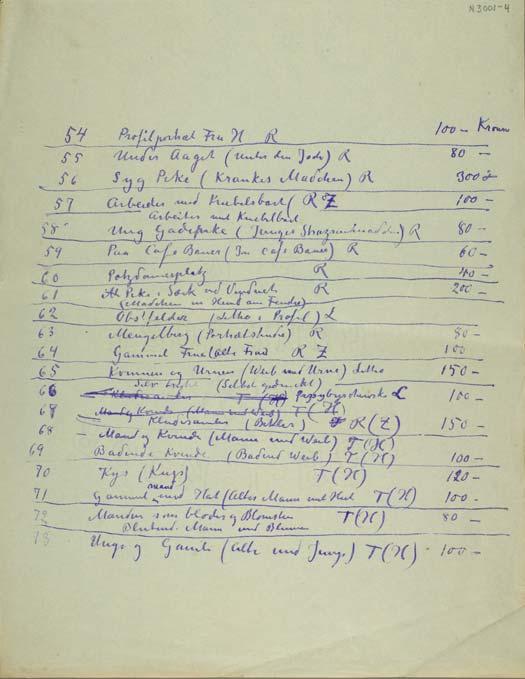 N 3001-4
54 Profilportræt Fru H R 100 – Kronen
55 Under Aaget (Unter dem Joch) R 80 –
56 Syg Pike (Krankes Madchen) R 300
57 Arbeider med Knebelsbart R Z 100 –
Arbeiter mit Knebelbart
58 Ung Gadepike (Junges Strazenmadchen) R 80 –
59 Paa Café Bauer (Im Café Bauer) R 60 –
60 Potzdamerplatz R 40 –
61 R 200 –
(Madchen im Hemd am Fenster)
62 Obstfelder (Litho i Profil) L
63 Mengelberg (Portrætstudie) R 80 –
64 Gammel Frue (alte Frau) R Z 100
65 Kvinnen og Urnen (Weib und Urne) Litho 150 –
(Selbst gedruckt)
66 T (H) L 100 –
Mand og Kvinde (Mann und Weib) T (H)
68 (Bettler) R (Z) 150 –
68 Mand og Kvinde (Mann und Weib) T (H)
69 Badende Kvinde (Badend Weib) T (H) 100 –
70 Kys (Kuss) T (H) 120 –
mand
71 Gammel med Hat (Alter Mann mit Hut T (H) 100 –
72 Manden som bloder og Blomsten T (H) 80 –
Blutend. Mann und Blumen
73 Unge og Gamle (alte und Junge) T (H) 100 –